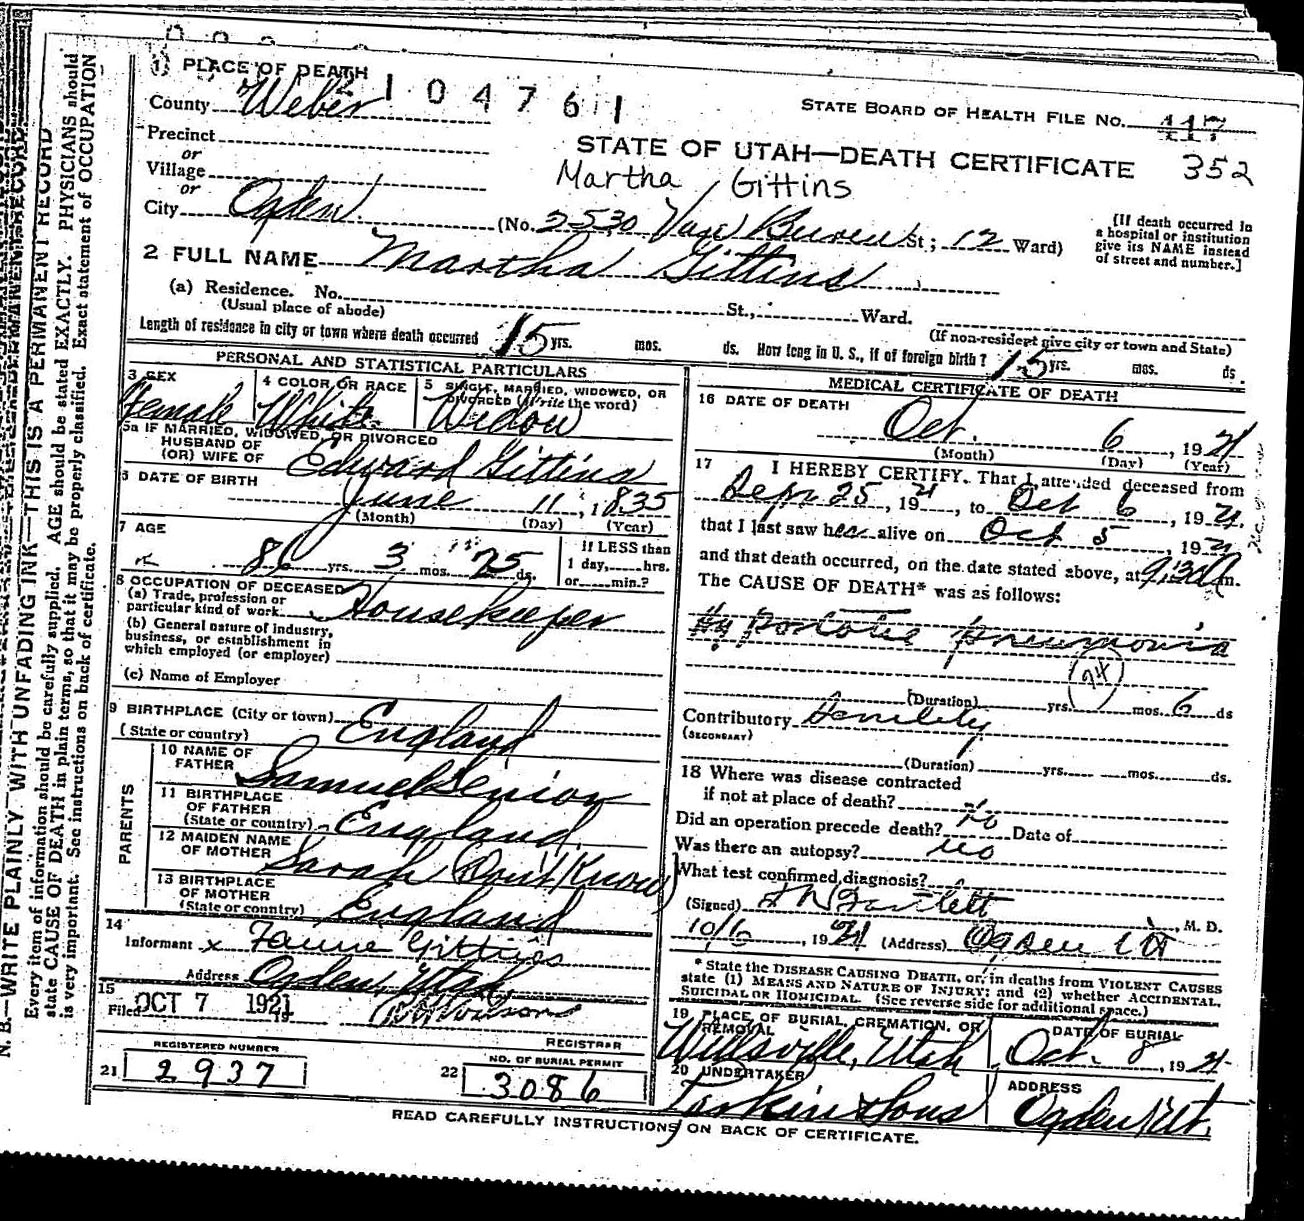 1) PLACE OF DEATH
2104761
County Weber
STATE BOARD OF HEALTH FILE NO. 117
352
Precinct
or
STATE OF UTAH—DEATH CERTIFICATE
Village
or
Martha Gittins
City Ogden (No. 2530 Van Buren St; 12 Ward)
[If death occurred in
a hospital or institution
give its NAME instead
of street and number.]
2 FULL NAME Martha Gittins
(a) Residence. No. St., Ward.
(Usual place of abode)
(If non-resident give city or town and State)
Length of residence in city or town where death occurred 15 yrs. mos. ds. How long in U. S., if of foreign birth? 15 yrs. mos. ds.
PERSONAL AND STATISTICAL PARTICULARS
3 SEX
Female
4 COLOR OR RACE
White
5 SINGLE, MARRIED, WIDOWED, OR
DIVORCED (Write the word)
Widow
5a IF MARRIED, WIDOWED, OR DIVORCED
HUSBAND OF
(OR) WIFE OF Edward Gittins
6 DATE OF BIRTH
June 11, 1835
(Month) (Day) (Year)
7 AGE
86 yrs. 3 mos. 25 ds.
If LESS than
1 day, hrs.
or min.?
8 OCCUPATION OF DECEASED
(a) Trade, profession or
particular kind of work. Housekeeper
(b) General nature of industry,
business, or establishment in
which employed (or employer)
(c) Name of Employer
9 BIRTHPLACE (City or town)
(State or country) England
PARENTS
10 NAME OF
FATHER Samuel Senior
11 BIRTHPLACE
OF FATHER
(State or country) England
12 MAIDEN NAME
OF MOTHER Sarah (Don't Know)
13 BIRTHPLACE
OF MOTHER
(State or country) England
14
Informant x Fannie Gittins
Address Ogden, Utah
15
Filed OCT 7 1921
19
REGISTRAR
21 REGISTERED NUMBER
2937
22 NO. OF BURIAL PERMIT
3086
MEDICAL CERTIFICATE OF DEATH
16 DATE OF DEATH
Oct. 6, 1921
(Month) (Day) (Year)
17 I HEREBY CERTIFY, That I attended deceased from
Sept 25, 1921, to Oct 6, 1921.
that I last saw her alive on Oct 5, 1921
and that death occurred, on the date stated above, at 9:30 A m.
The CAUSE OF DEATH* was as follows:
Hypostatic pneumonia
94
(Duration) yrs. mos. 6 ds
Contributory Senility
(SECONDARY)
(Duration) yrs. mos. ds.
18 Where was disease contracted
if not at place of death? no
Did an operation precede death? Date of
Was there an autopsy? no
What test confirmed diagnosis?
(Signed) Bartlett M. D.
10/6, 1921 (Address) Ogden Ut
* State the DISEASE CAUSING DEATH, or, in deaths from VIOLENT CAUSES
state (1) MEANS AND NATURE OF INJURY; and (2) whether ACCIDENTAL,
SUICIDAL OR HOMICIDAL. (See reverse side for additional space.)
19 PLACE OF BURIAL, CREMATION, OR
REMOVAL
Wellsville, Utah
DATE OF BURIAL
Oct. 8, 1921
20 UNDERTAKER
Larkin & Sons
ADDRESS
Ogden, Ut.
READ CAREFULLY INSTRUCTIONS ON BACK OF CERTIFICATE.
N. B.—WRITE PLAINLY WITH UNFADING INK—THIS IS A PERMANENT RECORD
Every item of information should be carefully supplied. AGE should be stated EXACTLY. PHYSICIANS should
state CAUSE OF DEATH in plain terms, so that it may be properly classified. Exact statement of OCCUPATION
is very important. See instructions on back of certificate.